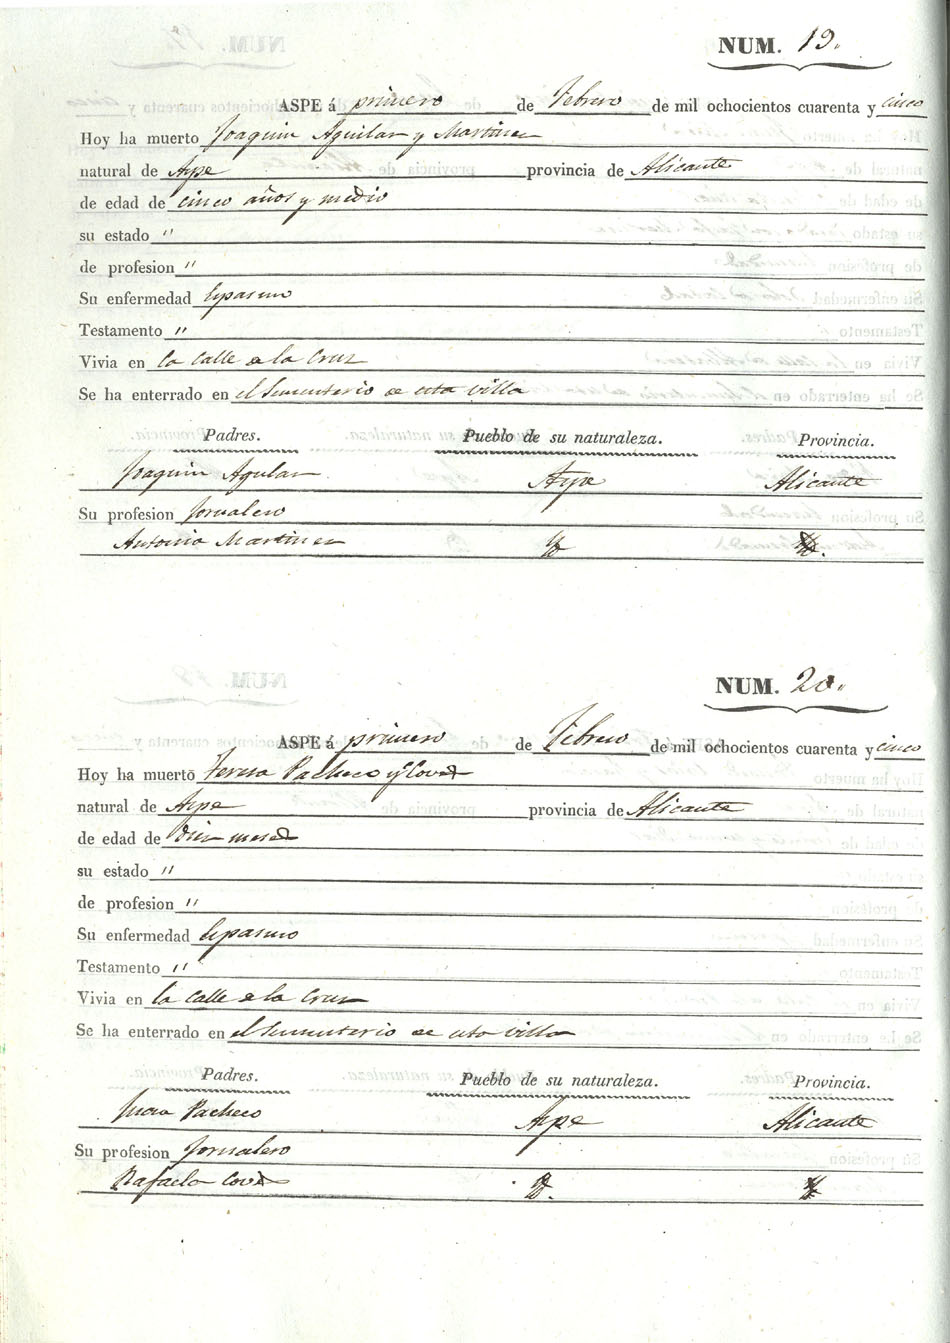 NUM. 19.
ASPE á primero de Febrero de mil ochocientos cuarenta y cinco
Hoy ha muerto Joaquin Aguilar y Martinez
natural de Aspe provincia de Alicante
de edad de cinco años y medio
su estado "
de profesion "
Su enfermedad Espasmo
Testamento "
Vivia en la calle de la Cruz
Se ha enterrado en el Sementerio de esta villa
Padres. Pueblo de su naturaleza. Provincia.
Joaquin Aguilar Aspe Alicante
Su profesion Jornalero
Antonia Martinez
NUM. 20.
ASPE á primero de Febrero de mil ochocientos cuarenta y cinco
Hoy ha muerto Teresa Pacheco y
natural de Aspe provincia de Alicante
de edad de diez meses
su estado "
de profesion "
Su enfermedad Espasmo
Testamento "
Vivia en la calle de la Cruz
Se ha enterrado en el Sementerio de esta villa
Padres. Pueblo de su naturaleza. Provincia.
Pacheco Aspe Alicante
Su profesion Jornalero
Rafaela